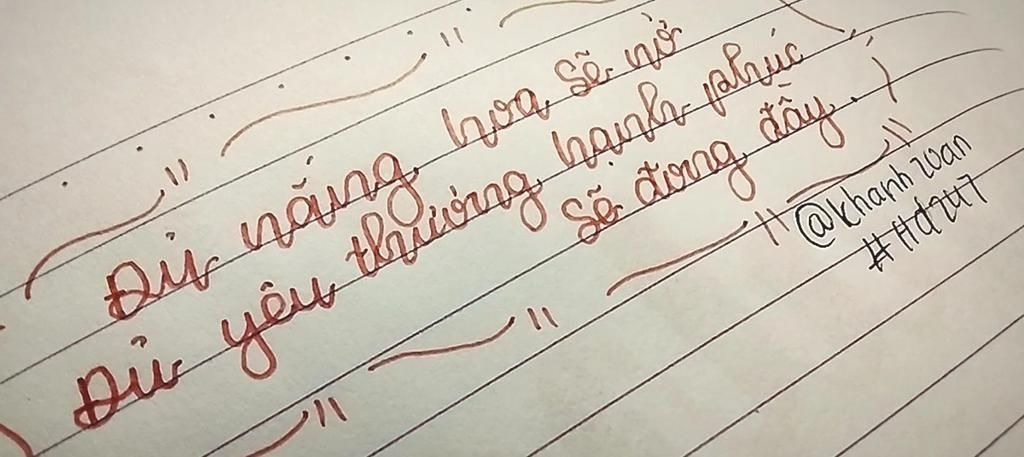 Đủ nắng hoa sẽ nở
Đủ yêu thương hạnh phúc
sẽ đong đầy.
@khanhzoan
#Hd247